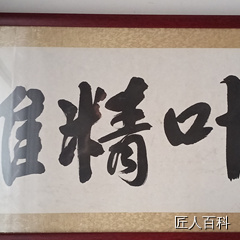 叶精
匠人百科